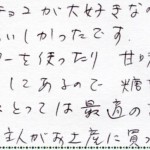 チョコが大好きな
いしかったです.
ーを使ったり 甘
してあるので 糖
とっては最適の
主人がお土産に買っ